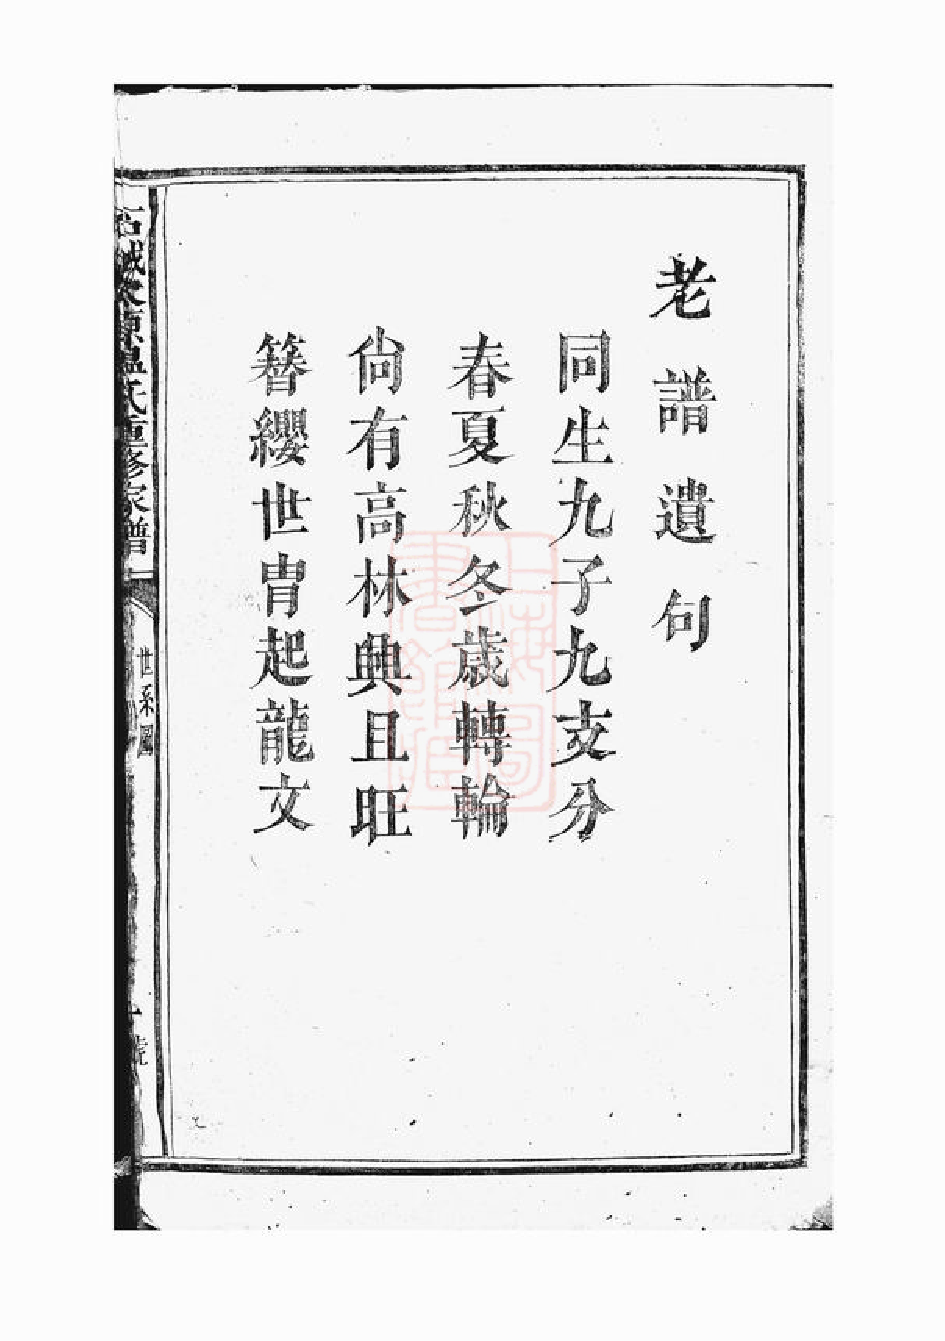 老譜遺句
同生九子九支分
春夏秋冬歳轉輪
尙有高林興且旺
簪纓世冑起龍文
石城太原溫氏重修家譜
世系圖